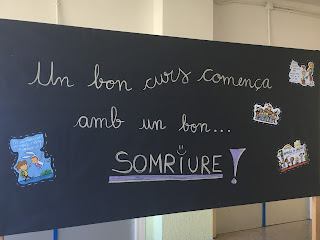 Un bon curs comença
amb un bon...
SOMRIURE!